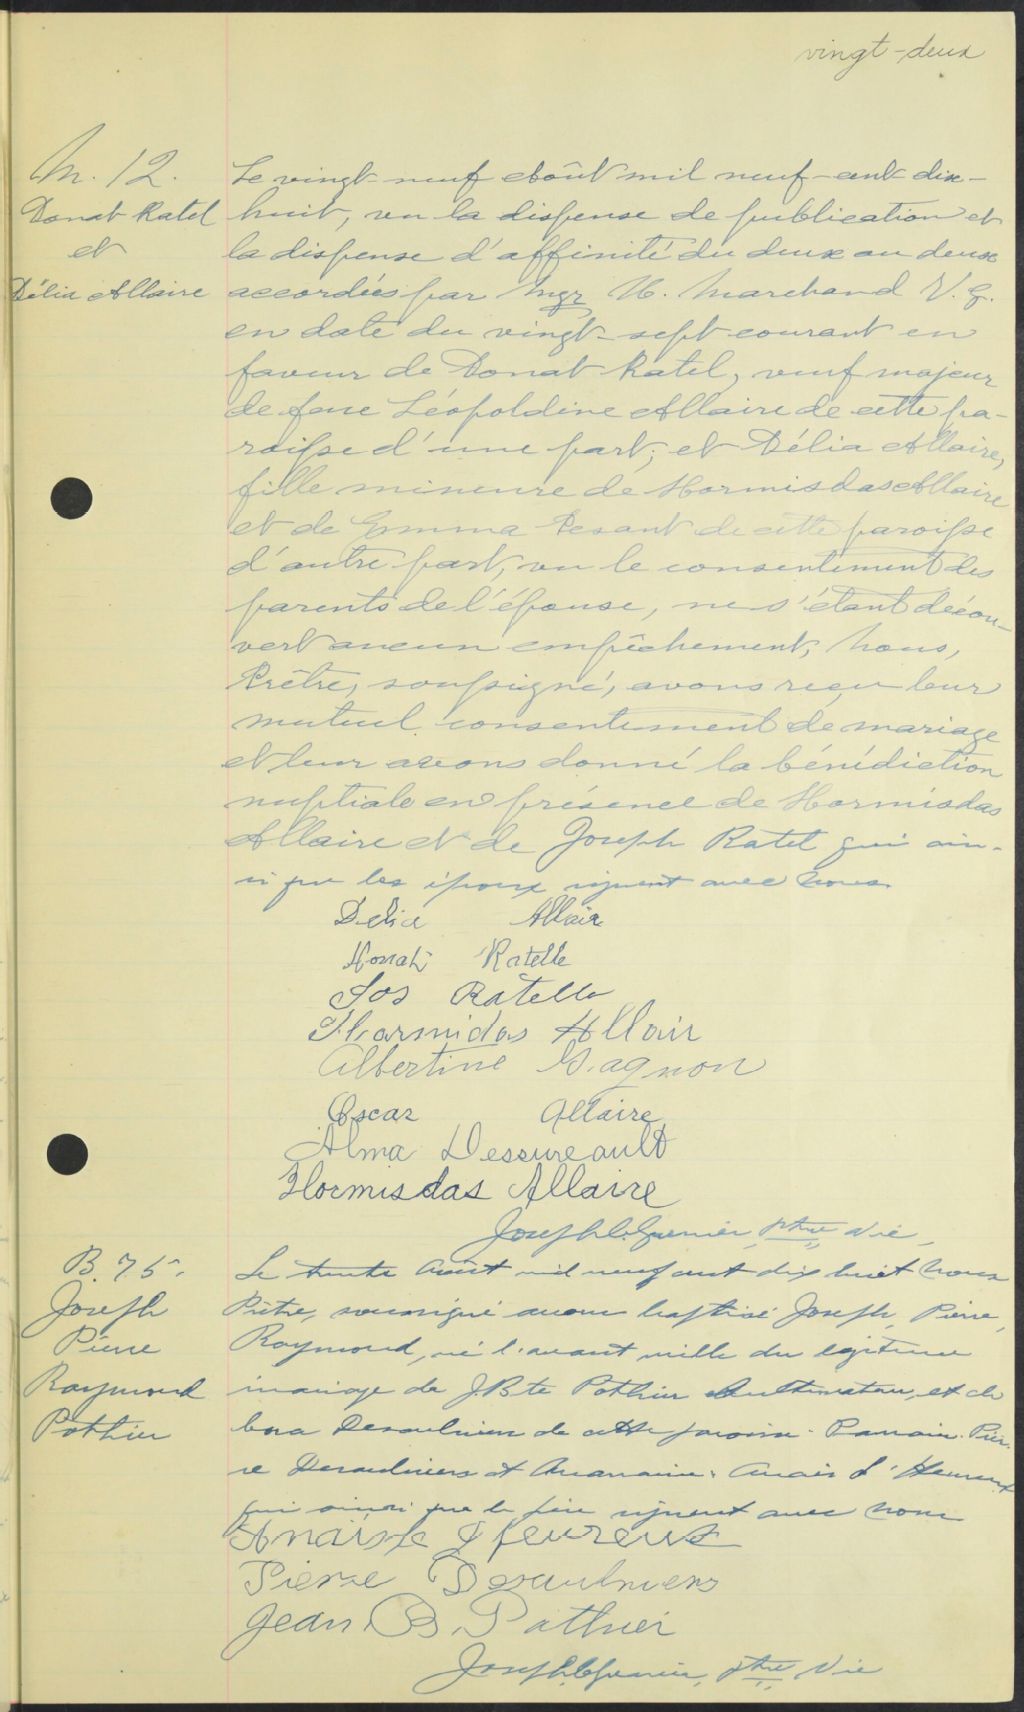 vingt-deux
M. 12.
Donat Ratel
et
Délia Allaire
Le vingt-neuf Août mil neuf-cent-dix-
huit, vu la dispense de publication et
la dispense d'affinité du deux au deux
accordées par Mgr H. Marchand V. G.
en date du vingt-sept courant en
faveur de Donat Ratel, veuf majeur
de feue Léopoldine Allaire de cette pa-
roisse d'une part; et Délia Allaire,
fille mineure de Hormisdas Allaire
et de Emma Pesant de cette paroisse
d'autre part, vu le consentement des
parents de l'épouse, ne s'étant décou-
vert aucun empêchement, Nous,
Prêtre, soussigné, avons reçu leur
mutuel consentement de mariage
et leur avons donné la bénédiction
nuptiale en présence de Hormisdas
Allaire et de Joseph Ratel qui ain-
si que les époux signent avec Nous.
Delia Allair
Donat Ratelle
Jos Ratelle
Hormidas Allair
Albertine Gagnon
Oscar Allaire
Alma Dessureault
Hormisdas Allaire
Joseph C. Grenier, ptre Vic
B. 75.
Joseph
Pierre
Raymond
Pothier
Le trente Août mil neuf cent dix huit Nous
Prêtre, soussigné avons baptisé Joseph, Pierre,
Raymond, né l'avant veille du légitime
mariage de J. Bte Pothier Cultivateur, et de
Desaulniers de cette paroisse. Parrain. Pier-
re Desaulniers et Marraine. Anaïs L'Heureux
qui ainsi que le père signent avec Nous
Anaïs L'Heureux
Pierre Desaulniers
Jean B. Pothier
Joseph C. Grenier, ptre Vic